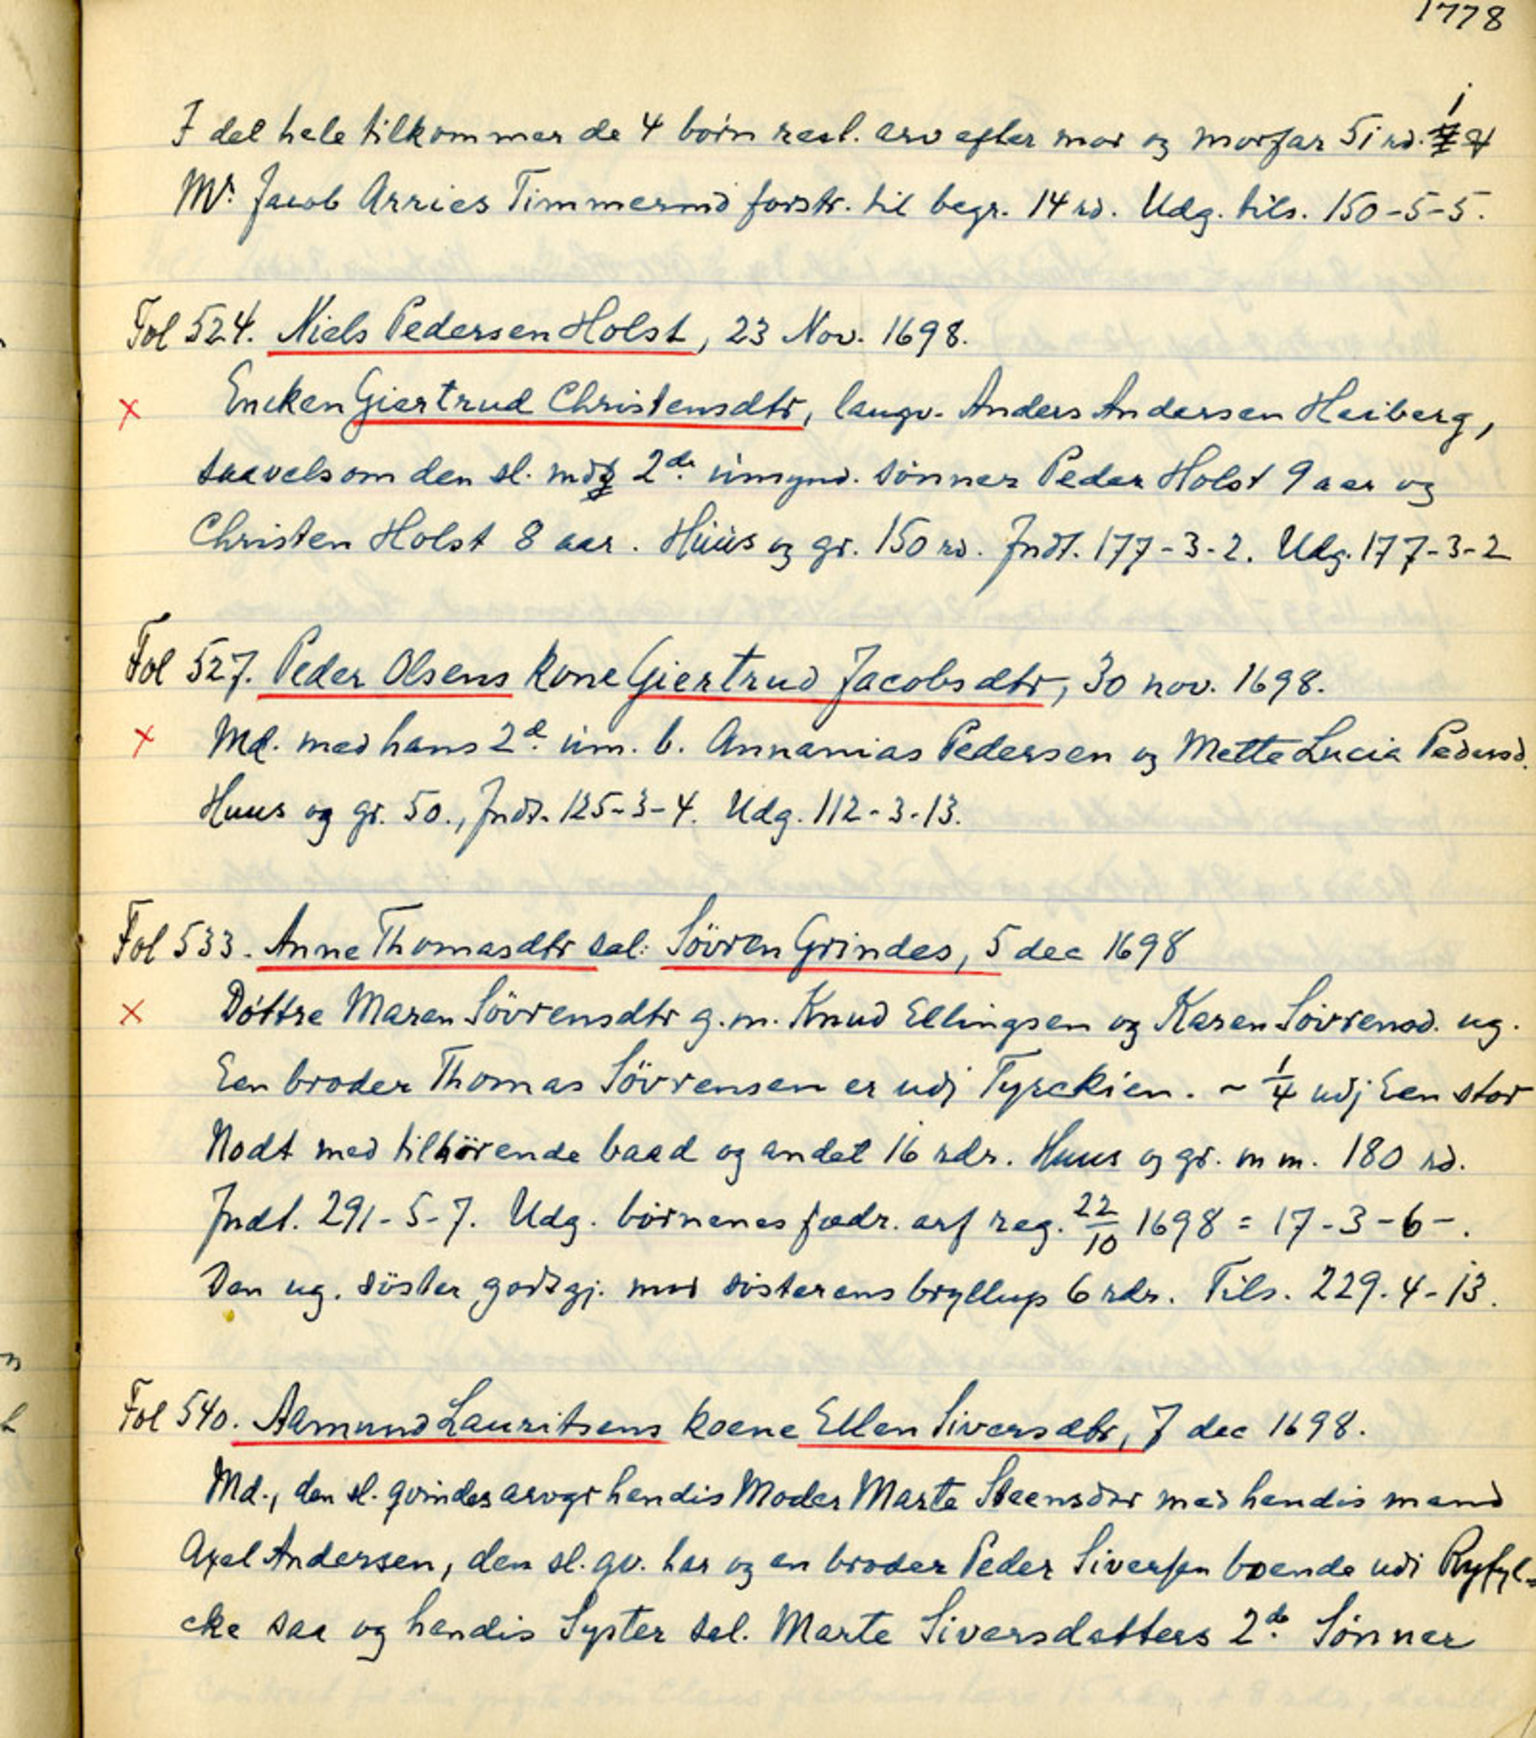 1778
I det hele tilkommer de 4 börn rest. arv efter mor og morfar 51 rd.
Mr. Jacob Arries Timmermd forstr. til begr. 14 rd. Udg. tils. 150-5-5.
Fol 524. Niels Pedersen Holst, 23 Nov. 1698.
Encken Giertrud Christensdtr, laugv. Anders Andersen Heiberg,
saavelsom den sl. mds 2de umynd. sønner Peder Holst 9 aar og
Christen Holst 8 aar. Hüüs og gr. 150 rd. Indt. 177-3-2. Udg. 177-3-2
Fol 527. Peder Olsens kone Giertrud Jacobsdtr, 30 nov. 1698.
Md. med hans 2de um. b. Annanias Pedersen og Mette Lucia Pedersd.
Huus og gr. 50., Indt. 125-3-4. Udg. 112-3-13.
Fol 533. Anne Thomasdtr sal: Sövren Grindes, 5 dec 1698
Döttre Maren Sövrensdtr g.m. Knud Ellingsen og Karen Sövrensd. ug.
Een broder Thomas Sövrensen er udj Tyrckien. ~ 1/4 udj Een stor
Nodt med tilhörende baad og andet 16 rdr. Huus og gr. m m. 180 rd.
Indt. 291-5-7. Udg. börnenes fædr. arf reg. 22/10 1698 = 17-3-6-.
Den ug. söster godtgj. mod sösterens bryllup 6 rdr. Tils. 229-4-13.
Fol 540. Aamund Lauritsens koene Ellen Siversdtr, 7 dec 1698.
Md., den sl. qvindes arvgr hendis Moder Marte Steensdtr med hendis mand
Axel Andersen, den sl. qv. har og en broder Peder Siversen boende udi Ryfyl=
cke saa og hendis Syster sal. Marte Siversdatters 2de Sønner